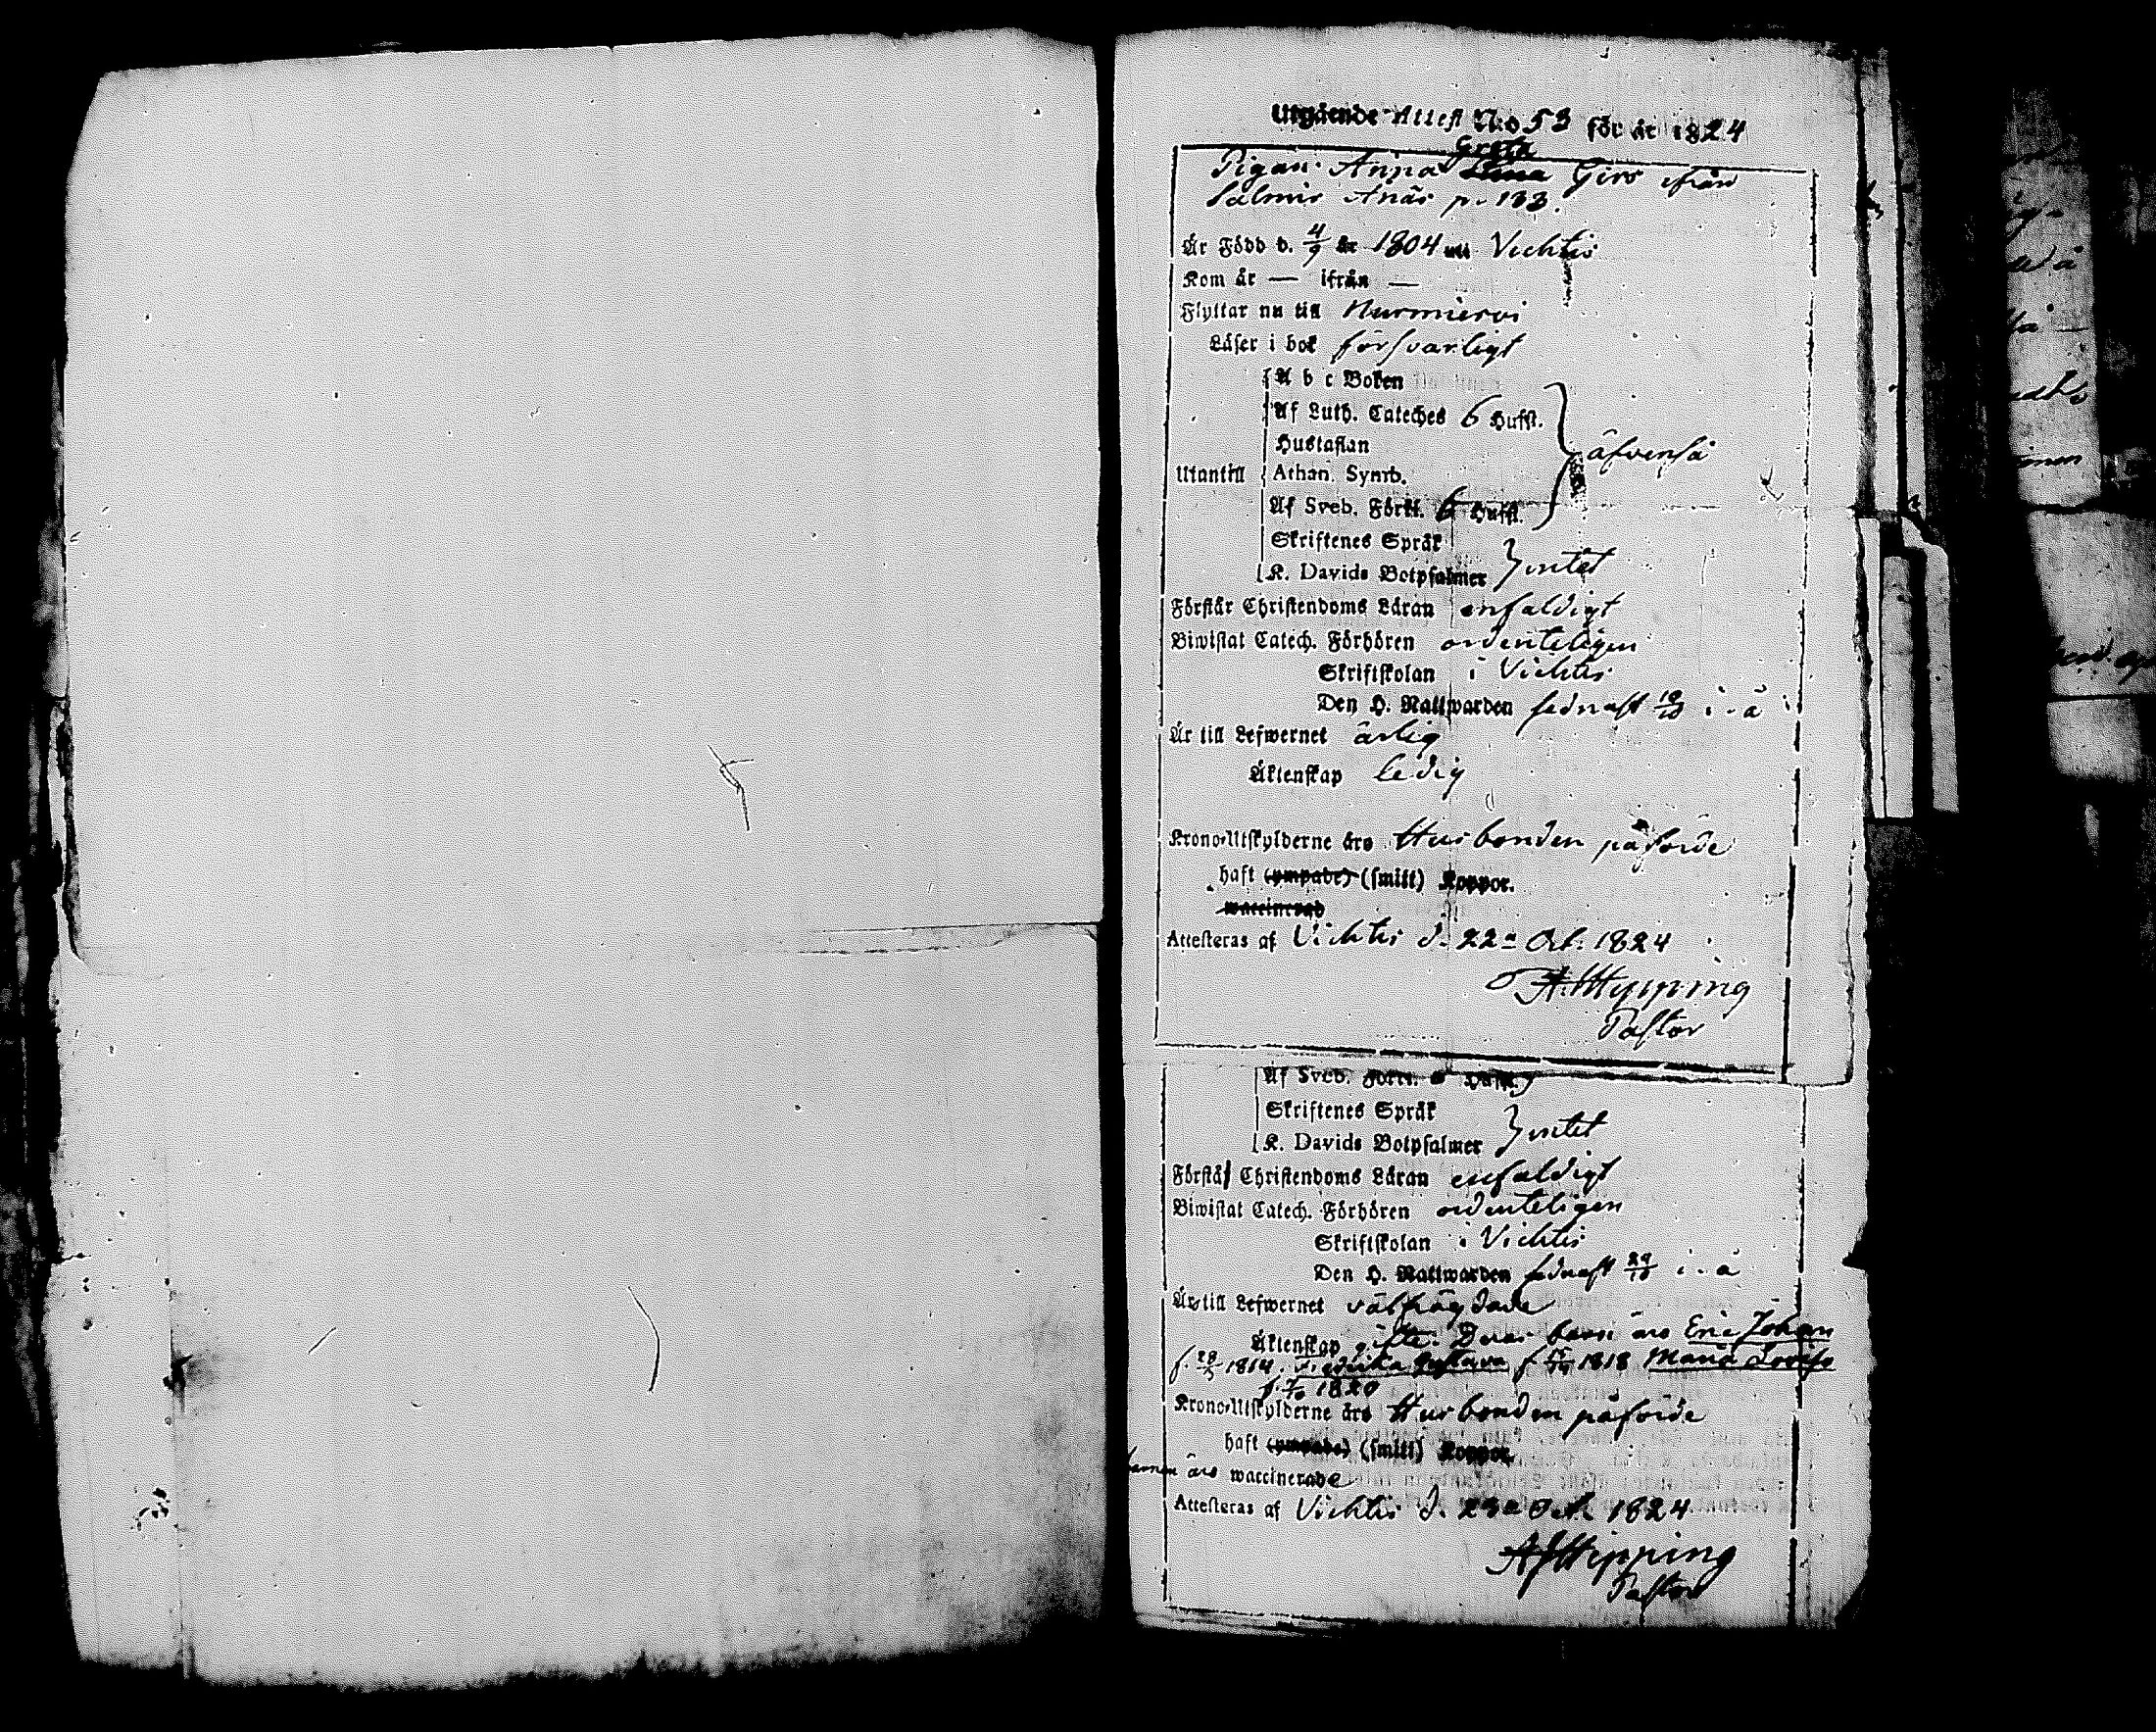 Utgående Attest No 53 för år 1824
Greta
Pigan Anna Giers ifrån
Salmis Anäs p. 133.
Är Född d. 4/9 år 1804 uti Vichtis
Kom år — ifrån —
Flyttar nu till Nurmijervi
Läser i bok försvarligt
A b c Boken
Af Luth. Cateches 6 Hufst.
Hustaflan
äfvenså
Utantill
Athan. Symb.
Af Sveb. Förkl. 6 Hufst.
Skriftenes Språk
K. Davids Botpsalmer
intet
Förstår Christendoms Läran enfaldigt
Biwistat Catech. Förhören ordenteligen
Skriftskolan i Vichtis
Den H. Nattwarden sednast 10/10 i. å
Är till Lefwernet ärlig
Äktenskap ledig
Krono-Utskylderne äro Husbonden påförde
haft (ympade) (smitt) Koppor.
waccinerad
Attesteras af Vichtis d. 22a Oct. 1824
Hipping
Pastor
Af Sveb. Förkl. 6 Hufst.
Skriftenes Språk
K. Davids Botpsalmer
intet
Förstå Christendoms Läran enfaldigt
Biwistat Catech. Förhören ordenteligen
Skriftskolan i Vichtis
Den H. Nattwarden sednast 24/10 i. å
Är till Lefwernet välfrägdade
Äktenskap gifte. Deras barn äro Eric Johan
f. 28/5 1814. Fredrika Gustava f. 1818 Maria Lovisa
f. 1820
Krono-Utskylderne äro Husbonden påförde
haft (ympade) (smitt) Koppor.
barnen äro waccinerade
Attesteras af Vichtis d. 23a Oct. 1824.
Hipping
Pastor